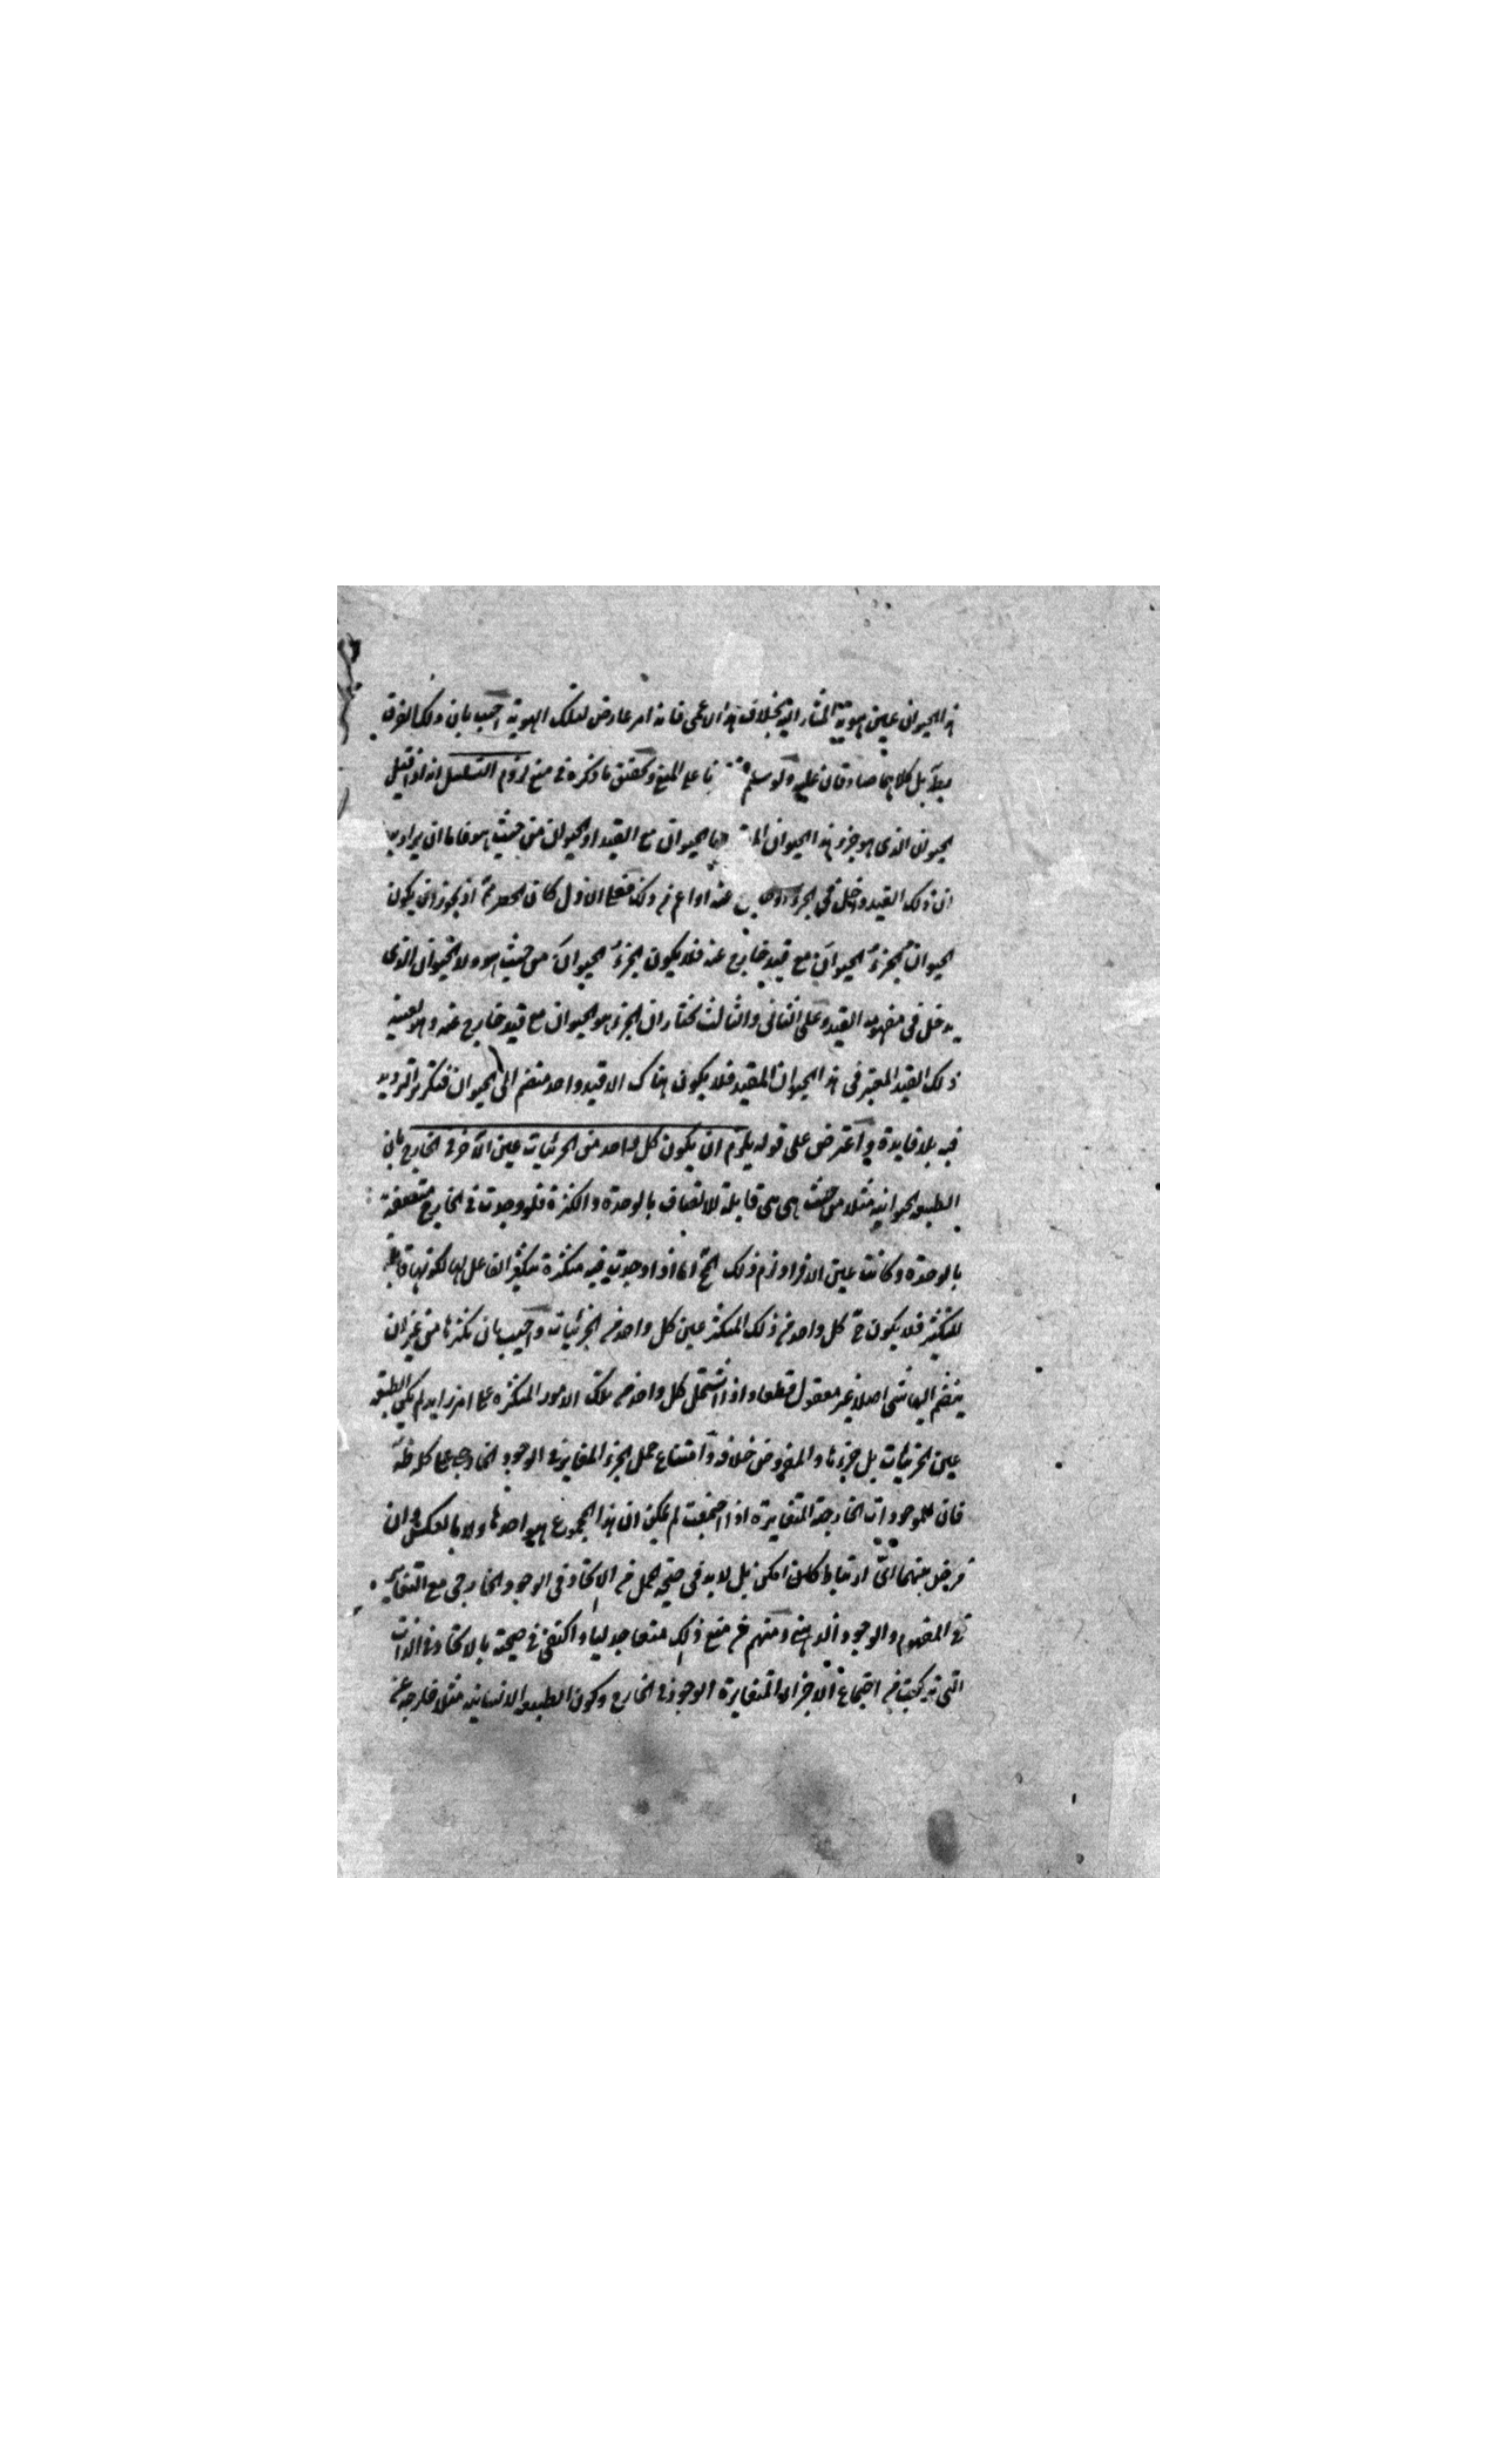 هذا الحيوان عين هوية المشار اليه بخلاف هذا الاعمى فانه امر عارض لتلك الهوية اجيب بان ذلك الفرق
بل كلاهما صادقان عليه ولو سلم على المنع وتحقق ما ذكره في منع لزوم التسلسل انه اذا قيل
الحيوان الذى هو جزء هذا الحيوان الحيوان مع القيد او الحيوان من حيث هو فاما ان يراد به
ان ذلك القيد داخل في الجزء او خارج عنه او اعم من ذلك فعلى الاول كان الحصر اذ يجوز ان يكون
الحيوان الجزء الحيوان مع قيد خارج عنه فلا يكون الجزء الحيوان من حيث هو ولا الحيوان الذى
يدخل في مفهومه القيد وعلى الثانى والثالث نختار ان الجزء هو الحيوان مع قيد خارج عنه وهو بعينه
ذلك القيد المعتبر فى هذا الحيوان المقيد فلا يكون هناك الا قيد واحد منضم الى الحيوان فتكرير الترديد
فيه بلا فايدة واعترض على قوله يلزم ان يكون كل واحد من الجزئيات عين الآخر في الخارج بان
الطبيعة الحيوانية مثلا من حيث هى هى قابلة للاتصاف بالوحدة والكثرة فلو وجدت في الخارج متصفة
بالوحدة وكانت عين الافراد لزم ذلك المح اما اذا وجدت فيه متكثرة بتكثير الفاعل لها لكونها قابلة
للتكثير فلا يكون ح كل واحد من ذلك المتكثر عين كل واحد من الجزئيات واجيب بان تكثرها من غير ان
ينضم اليها شى اصلا غير معقول قطعا واذا اشتمل كل واحد من تلك الامور المتكثرة على امر زايد لم يكن الطبيعة
عين الجزئيات بل جزءها والمفروض خلافه وامتناع حمل الجزء المغاير في الوجود الخارجى على كله ظ
فان الموجودات الخارجة المتغايرة اذا اجتمعت لم يمكن ان هذا المجموع هو احدها ولا بالعكس وان
فرض بينهما اىّ ارتباط كان امكن بل لا بد فى صحة الحمل من الاتحاد فى الوجود الخارجى مع التغاير
في المفهوم والوجود الذهنى ومنهم من منع ذلك واكتفى في صحته بالاتحاد في الذات
التى تركبت من اجتماع الاجزاء المتغايرة الوجود في الخارج وكون الطبيعة الانسانية مثلا خارجة عن